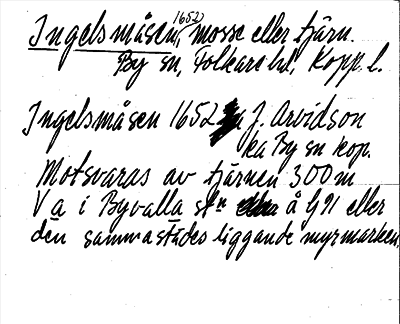 Ingelsmåsen, 1652, mosse eller tjärn.
By sn, Folkare hd, Kopp. l.
Ingelsmåsen 1652 J. Arvidson
ka By sn Kop.
Motsvaras av tjärnen 300 m
V a i Byvalla stn å G 91 eller
den sammastädes liggande myrmarken.